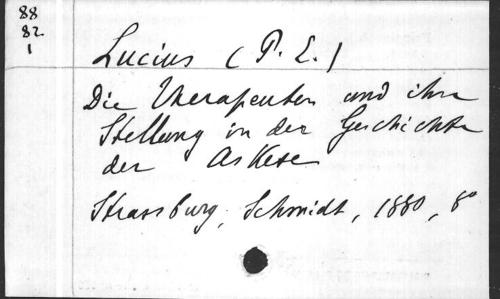 88
82
1
Lucius (P. E.)
Die Therapeuten und ihre
Stellung in der Geschichte
der Askese
Strassburg, Schmidt, 1880, 8°